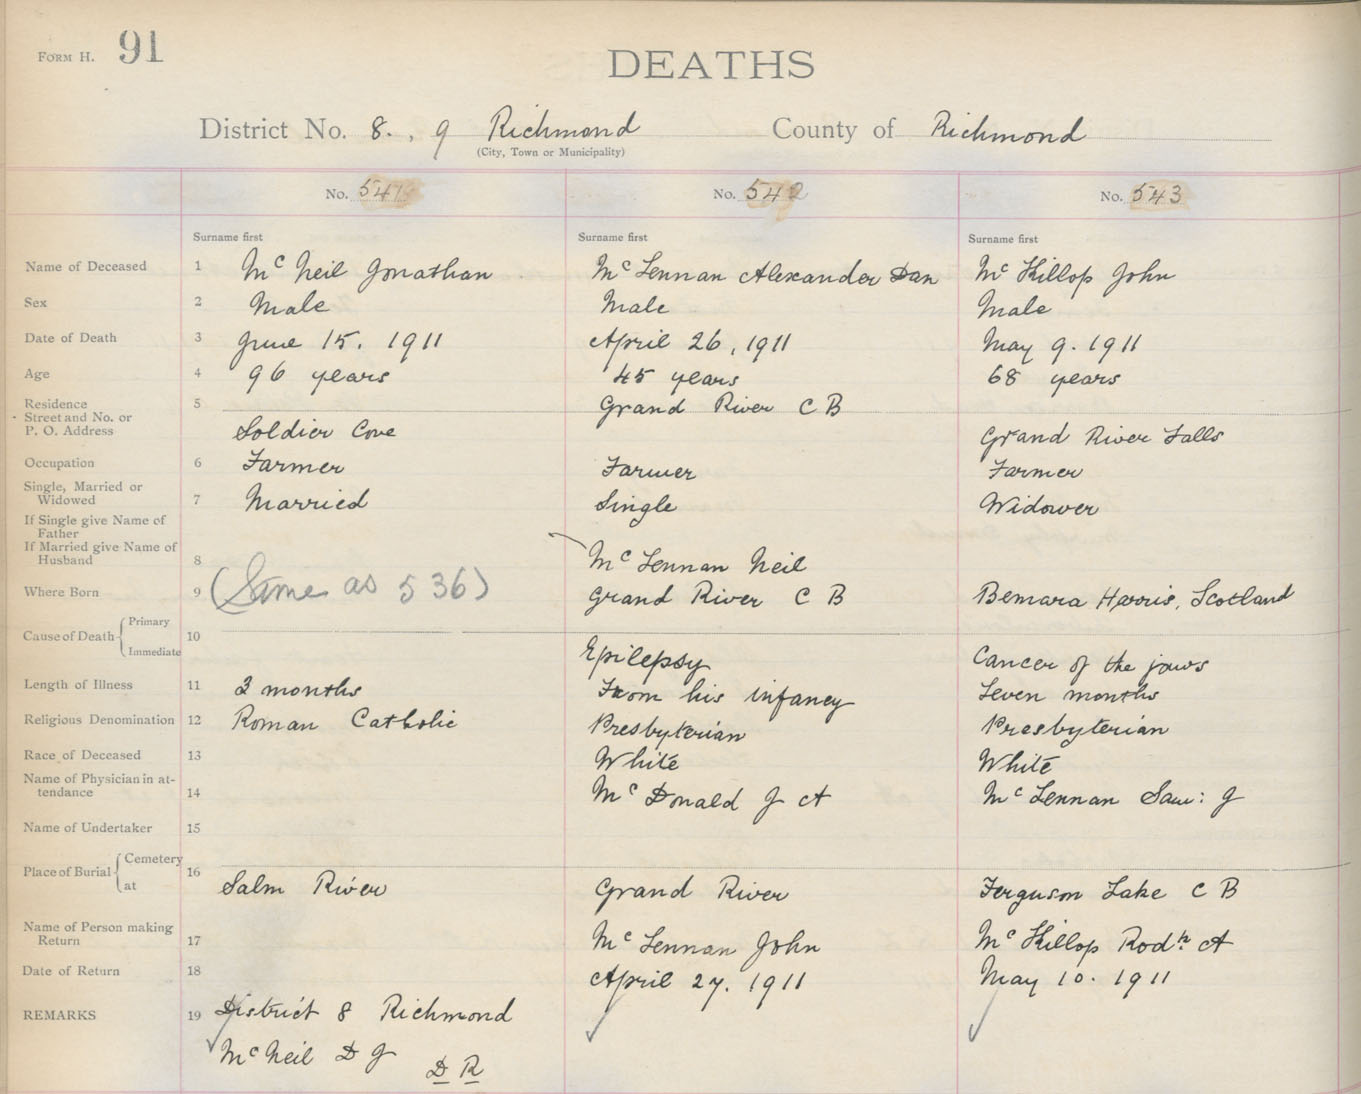 FORM H. 91
DEATHS
District No. 8. , 9 Richmond County of Richmond
(City, Town or Municipality)
No. 541 No. 542 No. 543
Surname first Surname first Surname first
Name of Deceased 1 Mc Neil Jonathan Mc Lennan Alexander Dan Mc Killop John
Sex 2 Male Male Male
Date of Death 3 June 15. 1911 April 26, 1911 May 9. 1911
Age 4 96 years 45 years 68 years
Residence 5 Grand River C B
Street and No. or
P. O. Address Soldier Cove Grand River Falls
Occupation 6 Farmer Farmer Farmer
Single, Married or
Widowed 7 Married Single Widower
If Single give Name of
Father
If Married give Name of
Husband 8 Mc Lennan Neil
Where Born 9 (Same as 536) Grand River C B Bernara Harris, Scotland
Cause of Death { Primary 10
Immediate Epilepsy Cancer of the jaws
Length of Illness 11 3 months From his infancy Seven months
Religious Denomination 12 Roman Catholic Presbyterian Presbyterian
Race of Deceased 13 White White
Name of Physician in at-
tendance 14 Mc Donald J A Mc Lennan Sam: J
Name of Undertaker 15
Place of Burial { Cemetery 16
at Salm River Grand River Ferguson Lake C B
Name of Person making
Return 17 Mc Lennan John Mc Killop Rodk A
Date of Return 18 April 27. 1911 May 10. 1911
REMARKS 19 District 8 Richmond
Mc Neil D J
D R